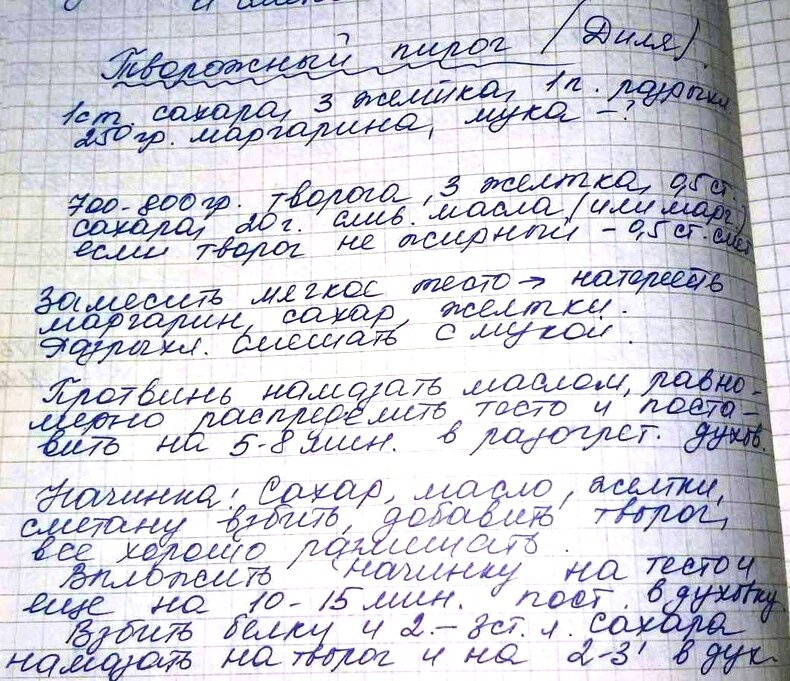 Творожный пирог (Диля).
1ст. сахара, 3 желтка, 1п. разрыхл
250гр. маргарина, мука – ?
700-800гр. творога, 3 желтка, 0,5 ст.
сахара, 20 г. слив. масла (или марг.)
если творог не жирный – 0,5 ст. смет
Замесить мягкое тесто → натереть
маргарин, сахар, желтки.
Разрыхл. смешать с мукой.
Протвинь намазать маслом, равно-
мерно распределить тесто и поста-
вить на 5-8 мин. в разогрет. духов.
Начинка: Сахар, масло, желтки,
сметану взбить, добавить творог,
все хорошо размешать.
Вложить начинку на тесто и
еще на 10-15 мин. пост. в духовку.
Взбить белки и 2.-3ст. л. сахара
намазать на творог и на 2-3' в дух.